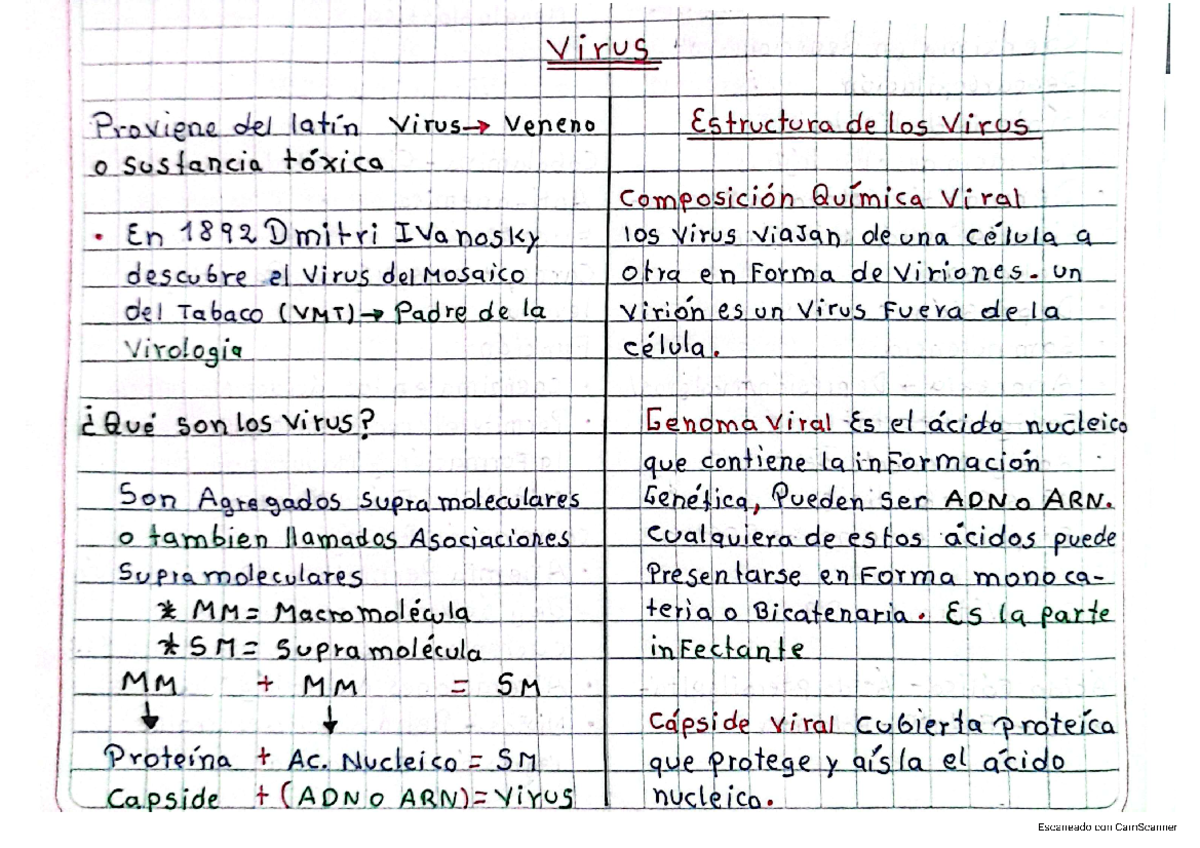 Virus
Proviene del latín Virus→ Veneno
o sustancia tóxica
• En 1892 Dmitri IVanosky
descubre el Virus del Mosaico
del Tabaco (VMT)→ Padre de la
Virología
¿Qué son los virus?
Son Agregados supramoleculares
o tambien llamados Asociaciones
Supramoleculares
* MM= Macromolécula
* SM= Supramolécula
MM + MM = SM
↓ ↓
Proteína + Ac. Nucleico = SM
Capside + (ADN o ARN)= Virus
Estructura de los Virus
Composición Química Viral
los virus viajan de una célula a
otra en Forma de Viriones. un
Virión es un Virus Fuera de la
célula.
Genoma Viral Es el ácido nucleico
que contiene la inFormación
Genética, Pueden ser ADN o ARN.
Cualquiera de estos ácidos puede
Presentarse en Forma monoca-
teria o Bicatenaria. Es la parte
inFectante
Cápside Viral Cubierta proteíca
que protege y aísla el ácido
nucleico.
Escaneado con CamScanner